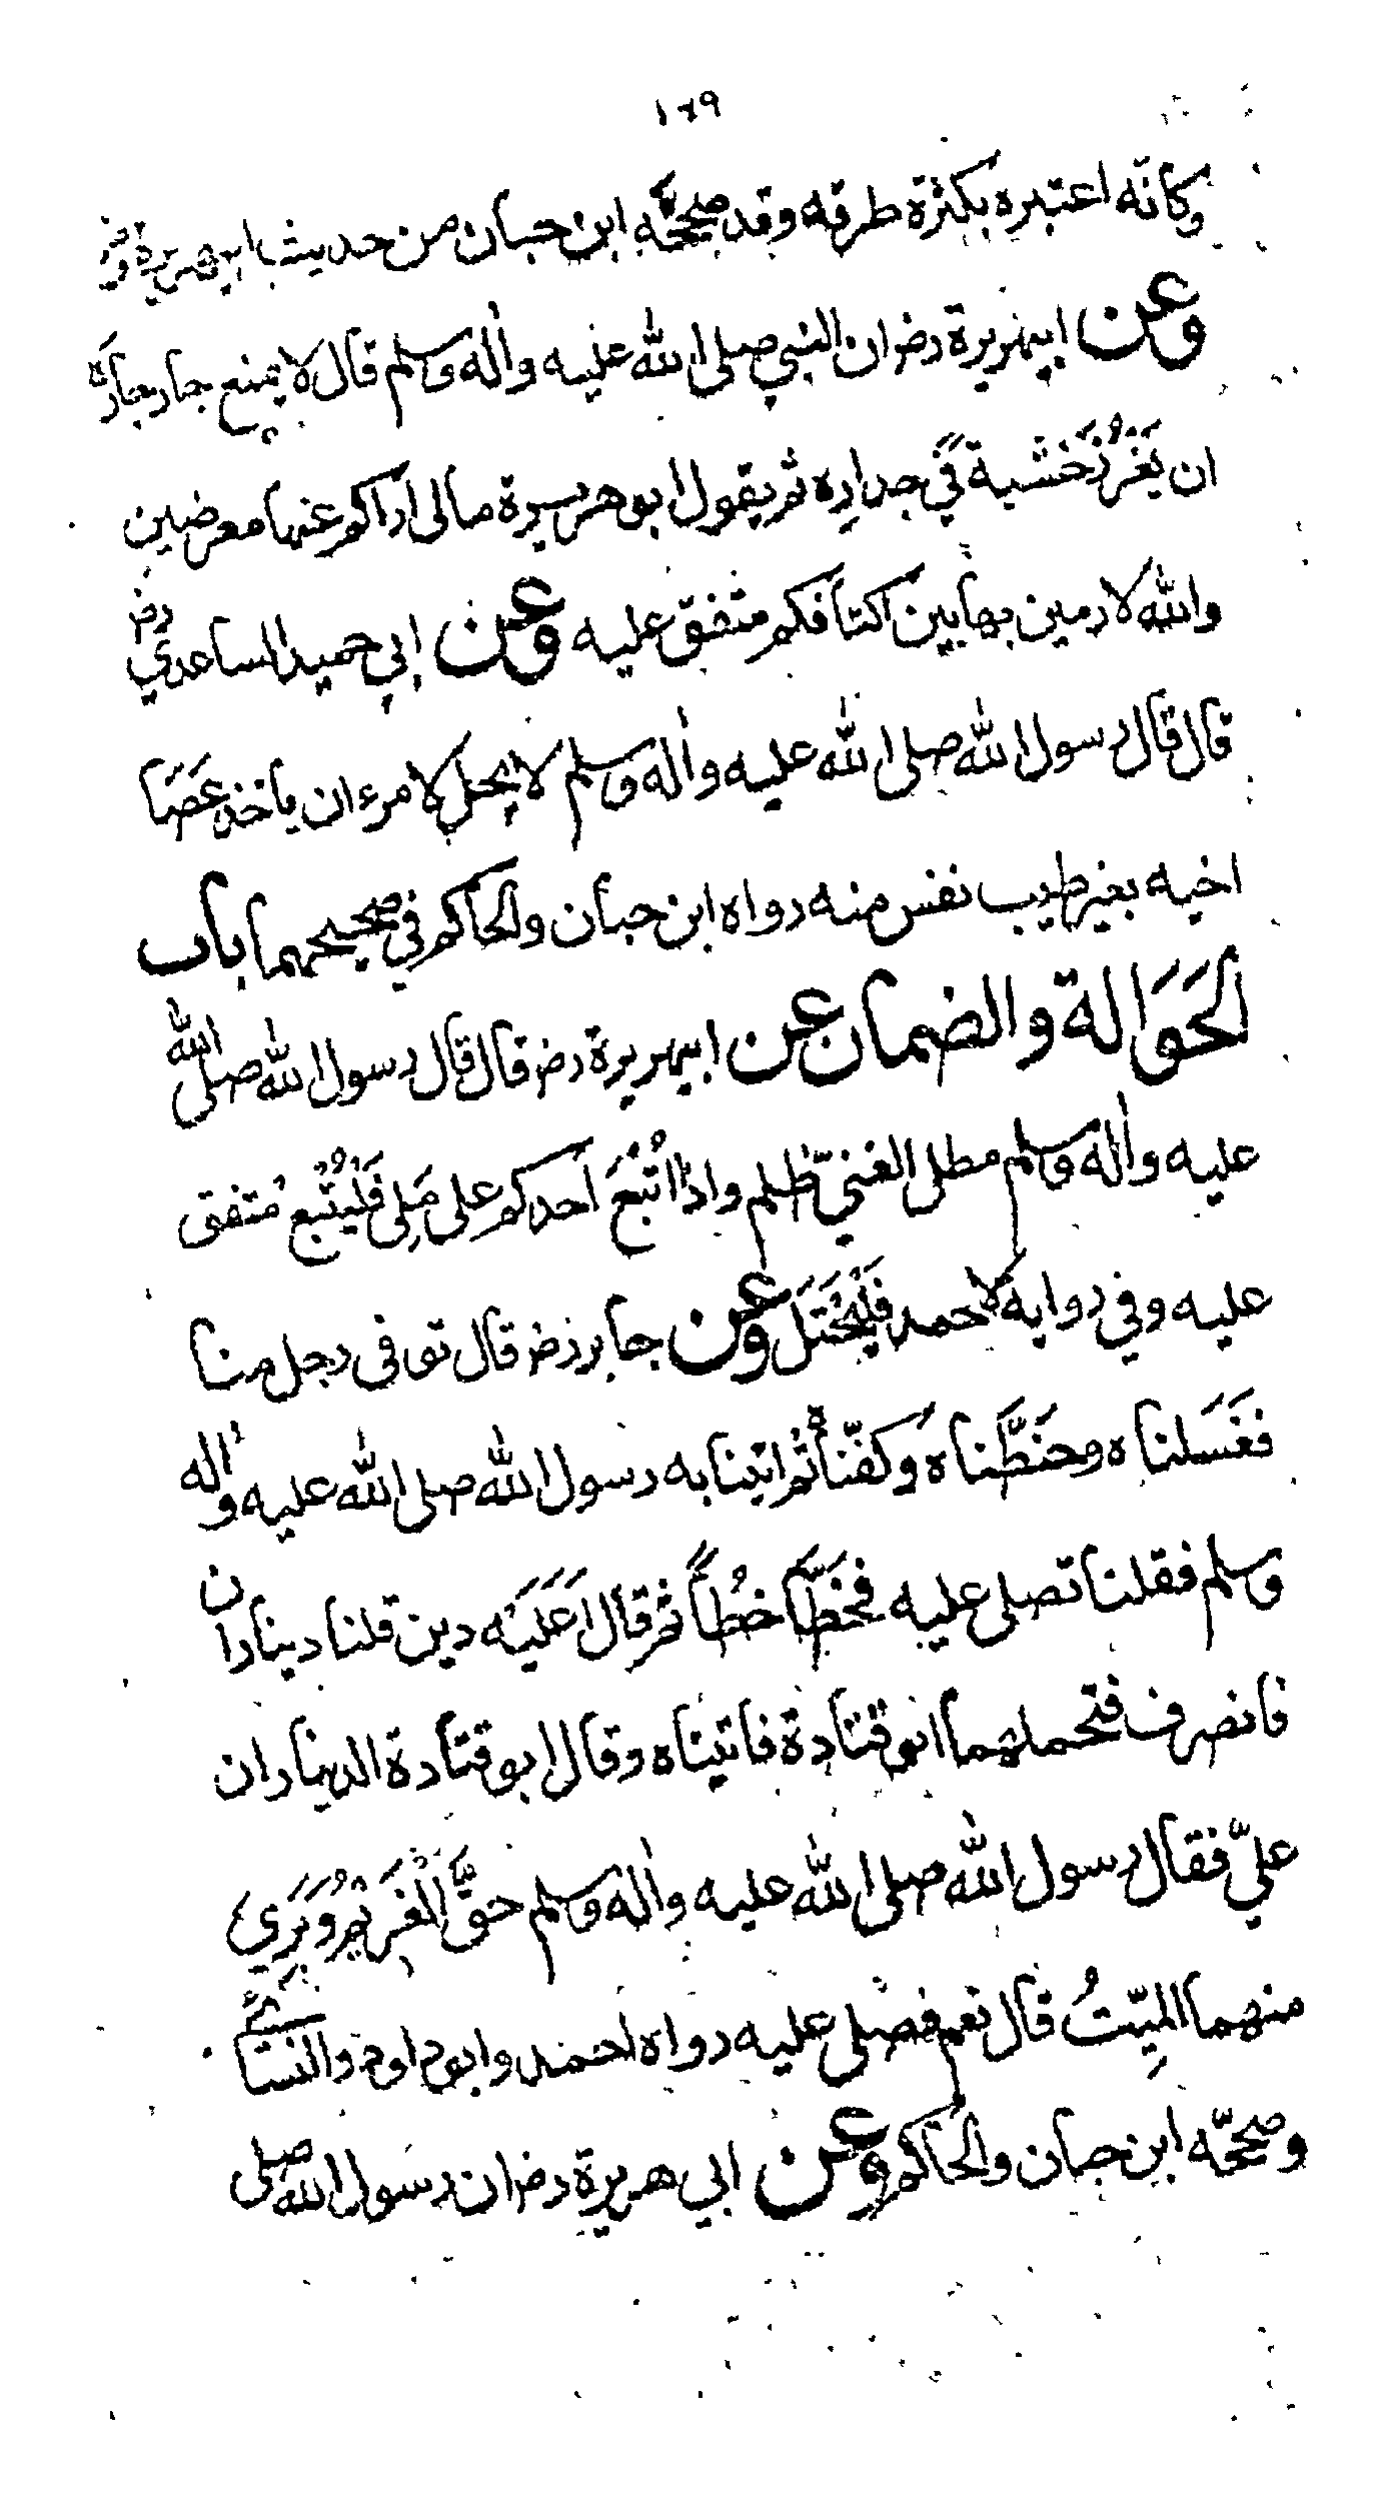 ١٢٩
وكانه اعتبره بكثرة طرقه وقد صححه ابن حبان من حديث ابي هريرة رض
وعن ابيهريرة رض ان النبي صلى الله عليه واٰله وسلم قال لا يمنع جار جارَه
ان يَغرُزَ خَشبةً في جدارِه ثم يقول ابو هريرة مالى اراكم عنها معرضين
والله لارمين بها بين اكتافكم متفق عليه وعن ابي حميد الساعدي رض
قال قال رسول الله صلى الله عليه واٰله وسلم لا يحل لامرء ان ياخذ عَصَا
اخيه بغير طيب نفس منه رواه ابن حبان والحاكم في صحيحهما باب
الحَوَالة والضمان عن ابيهريرة رض قال قال رسول الله صلى الله
عليه واٰله وسلم مطل الغنيّ ظلم واذا اُتْبعَ احدكم على مَلِي فَليُتْبع متفق
عليه وفي رواية لاحمد فَليَحْتَل وعن جابر رض قال توفى رجل منا
فغَسَلناه وحنَطّناه وكفّناه ثم اتينا به رسول الله صلى الله عليه واٰله
وسلم فقلنا تصلى عليه فخَطَا خُطاً ثم قال اَعَلَيَه دين قلنا ديناران
فانصرف فتحملهما ابو قتادة فاتيناه وقال ابو قتادة الديناران
عليّ فقال رسول الله صلى الله عليه واٰله وسلم حقَّ الغَرَيْمُ وبَرَيَ
منهما الميِّتُ قال نعم فصلى عليه رواه احمد وابو داود والنسَائي
وصححّه ابن حبان والحاكم وعن ابي هريرة رض ان رسول الله صلى